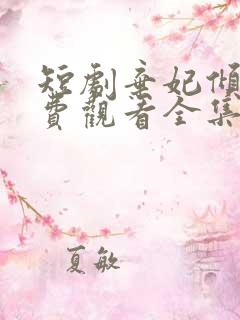 短劇棄妃傾
費觀看全集
夏敏